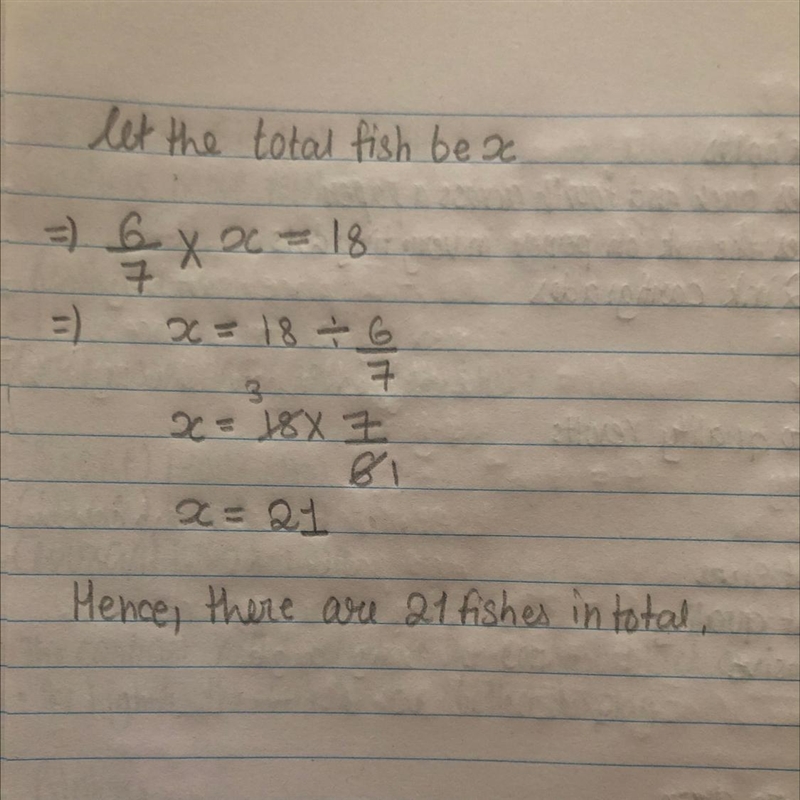 let the total fish be x
⇒ 6/7 × x = 18
⇒ x = 18 ÷ 6/7
x = 18 3 × 7/6 1
x = 21
Hence, there are 21 fishes in total.